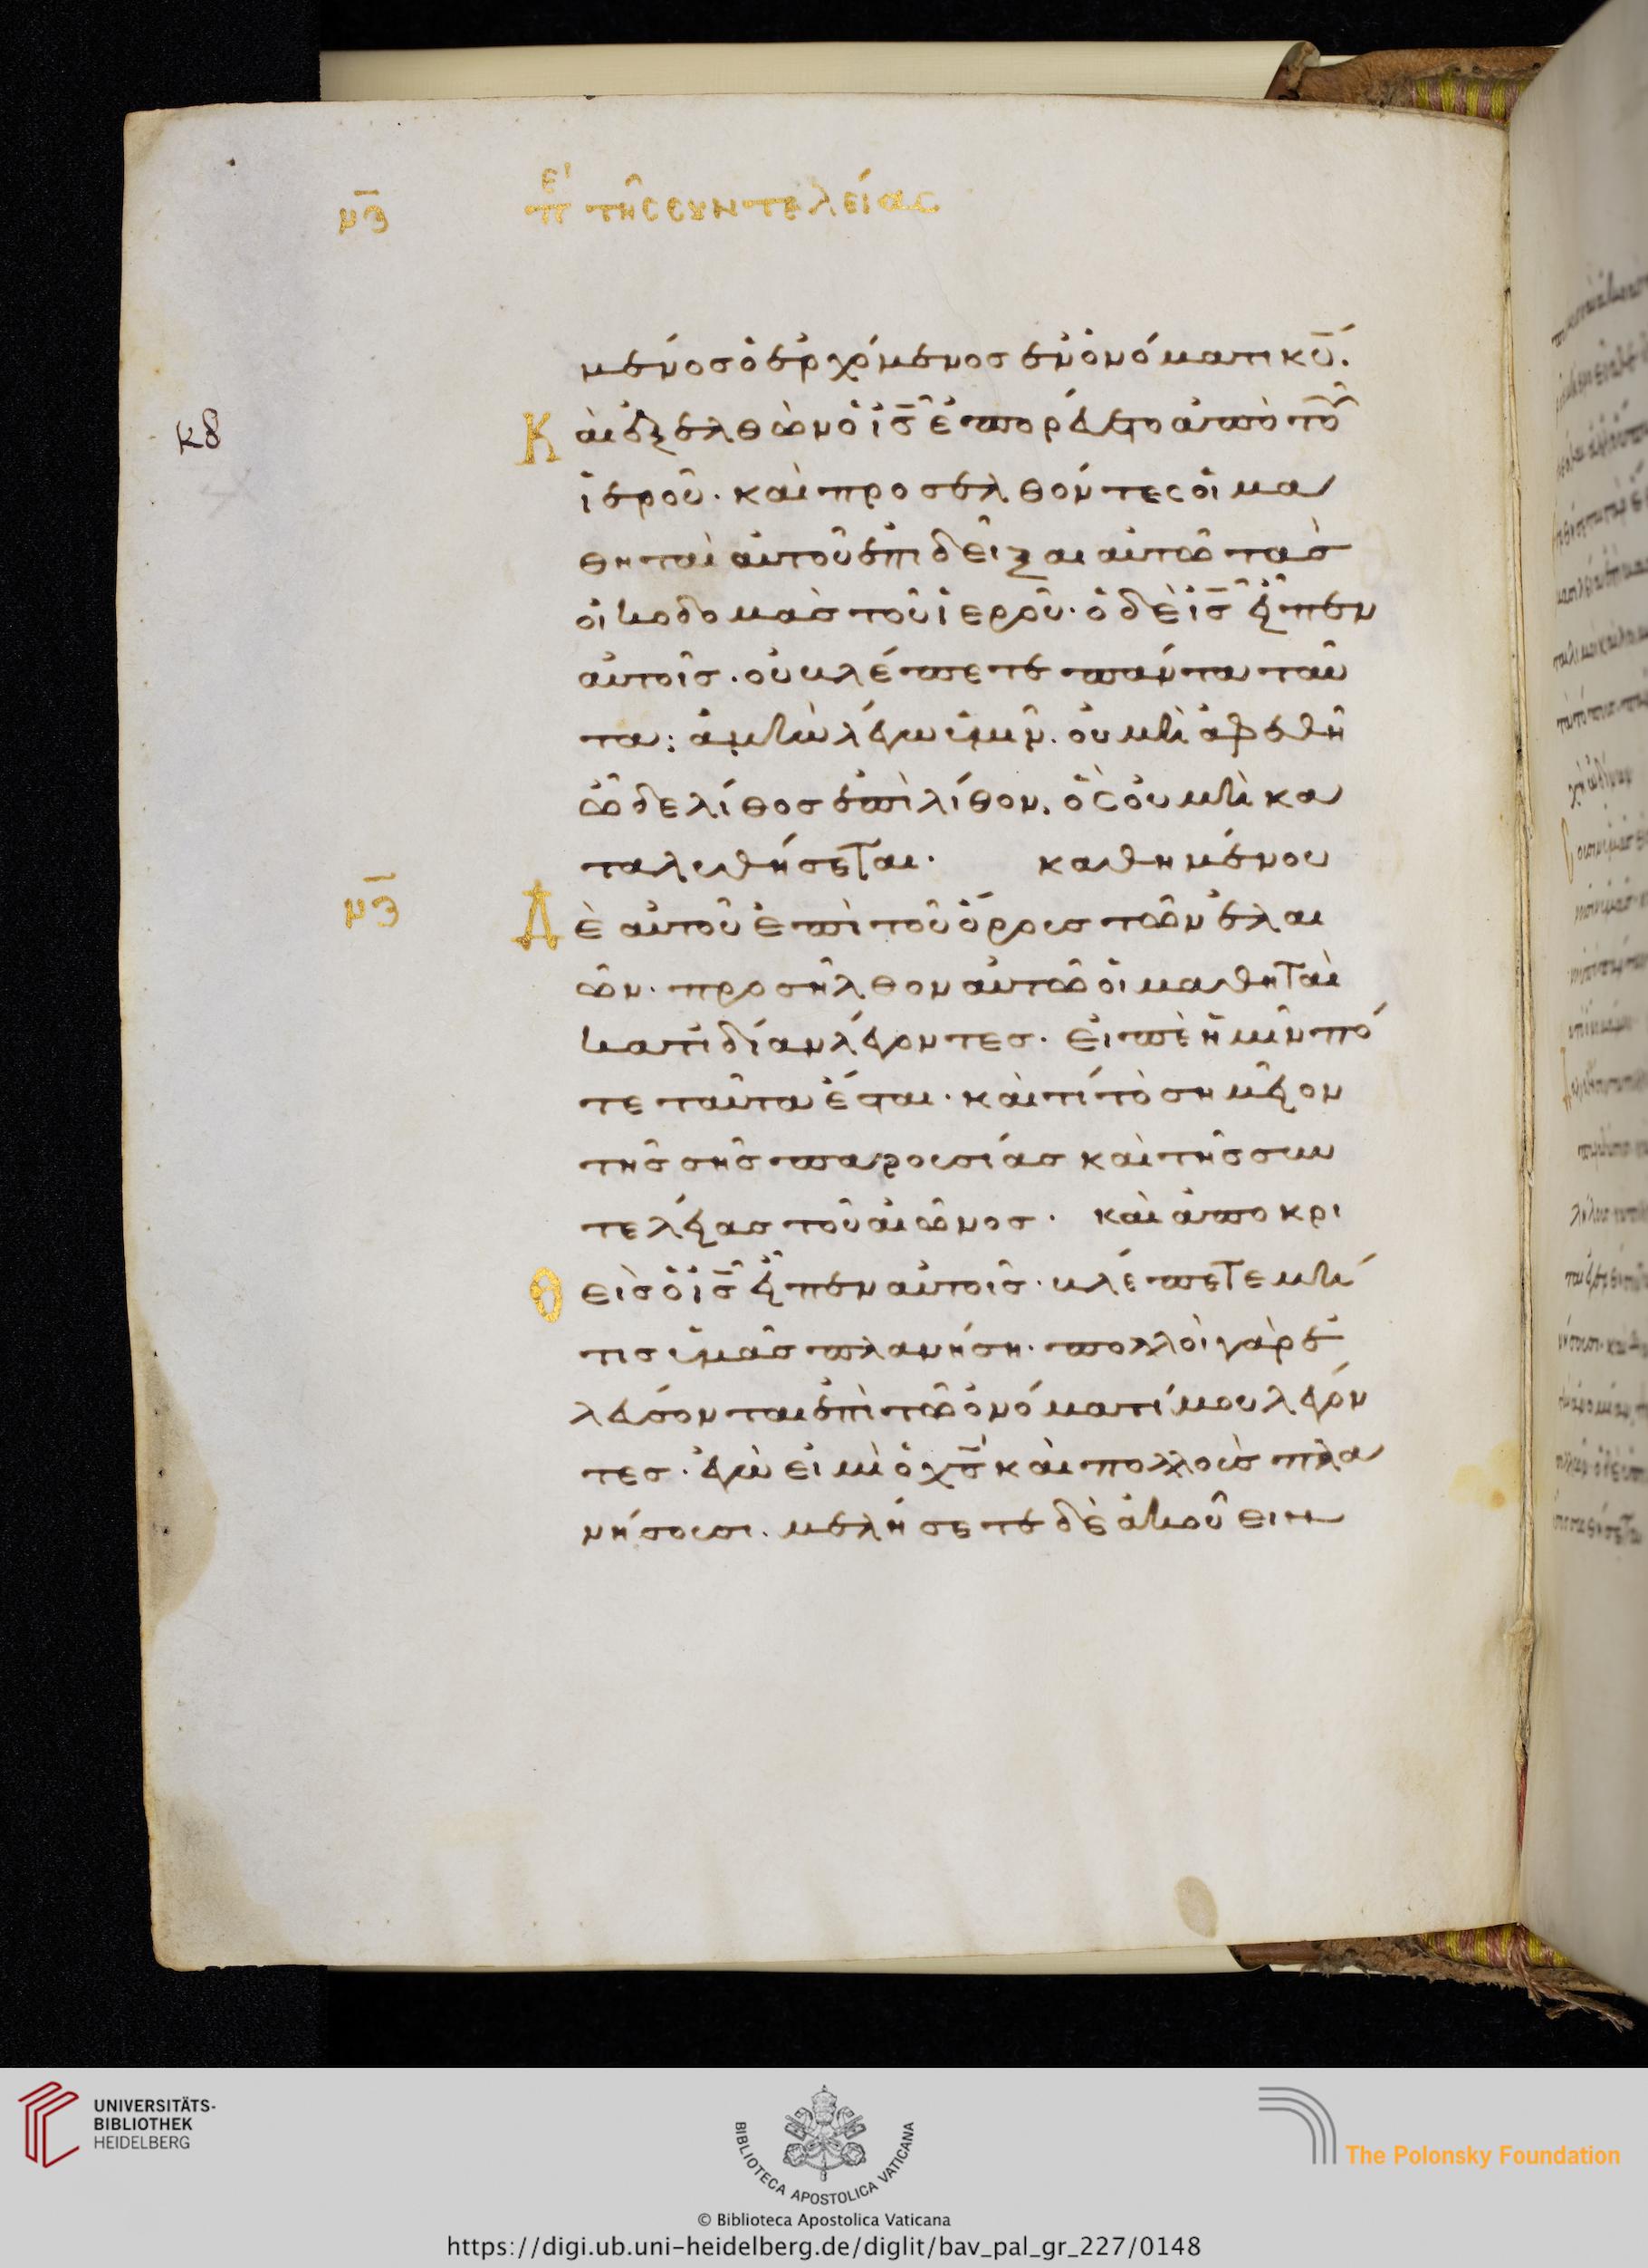 νζ̄ ἐπὶ τῆς συντελείας
μένος ὁ ἐρχόμενος ἐν ὀνόματι κ̅υ̅.
κδ Καὶ ἐξελθὼν ὁ ι̅ς̅ ἐπορεύετο ἀπὸ τοῦ
ἱεροῦ· καὶ προσελθόντες οἱ μα
θηταὶ αὐτοῦ ἐπιδεῖξαι αὐτῶ τὰς
οἰκοδομὰς τοῦ ἱεροῦ· ὁ δὲ ι̅ς̅ εἶπεν
αὐτοῖς· οὐ βλέπετε πάντα ταῦ
τα; ἀμὴν λέγω ὑμῖν. οὐ μὴ ἀφεθῆ
ὧδε λίθος ἐπὶ λίθον. ὃς οὐ μὴ κα
ταλυθήσεται· καθημένου
νζ̄ Δὲ αὐτοῦ ἐπὶ τοῦ ὄρους τῶν ἐλαι
ῶν· προσῆλθον αὐτῶ οἱ μαθηταὶ
κατιδίαν λέγοντες· εἰπὲ ἡμῖν πό
τε ταῦτα ἔσται· καὶ τί τὸ σημεῖον
τῆς σῆς παρουσίας καὶ τῆς συν
τελείας τοῦ αἰῶνος· καὶ ἀποκρι
Θεὶς ὁ ι̅ς̅ εἶπεν αὐτοῖς· βλέπετε μή
τις ὑμᾶς πλανήση· πολλοὶ γὰρ ἐ
λεύσονται ἐπὶ τῶ ὀνόματί μου λέγον
τες· ἐγὼ εἰμὶ ὁ χ̅ς̅ καὶ πολλοὺς πλα
νήσουσι. μελήσετε δὲ ἀκούειν
UNIVERSITÄTS-
BIBLIOTHEK
HEIDELBERG
BIBLIOTECA APOSTOLICA VATICANA
© Biblioteca Apostolica Vaticana
The Polonsky Foundation
https://digi.ub.uni-heidelberg.de/diglit/bav_pal_gr_227/0148